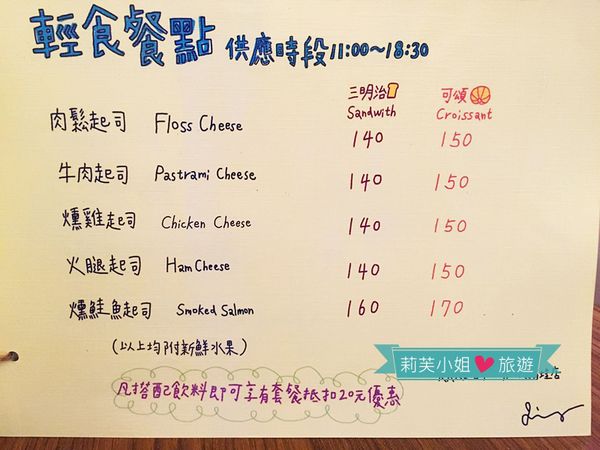 輕食餐點 供應時段11:00～18:30
三明治 可頌
Sandwith Croissant
肉鬆起司 Floss Cheese 140 150
牛肉起司 Pastrami Cheese 140 150
燻雞起司 Chicken Cheese 140 150
火腿起司 Ham Cheese 140 150
燻鮭魚起司 Smoked Salmon 160 170
(以上均附新鮮水果)
莉芙小姐 旅遊
凡搭配飲料即可享有套餐抵扣20元優惠